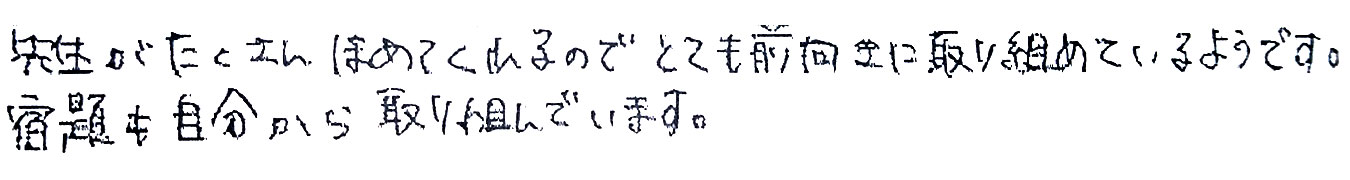 先生がたくさんほめてくれるのでとても前向きに取り組めているようです。
宿題も自分から取り組んでいます。